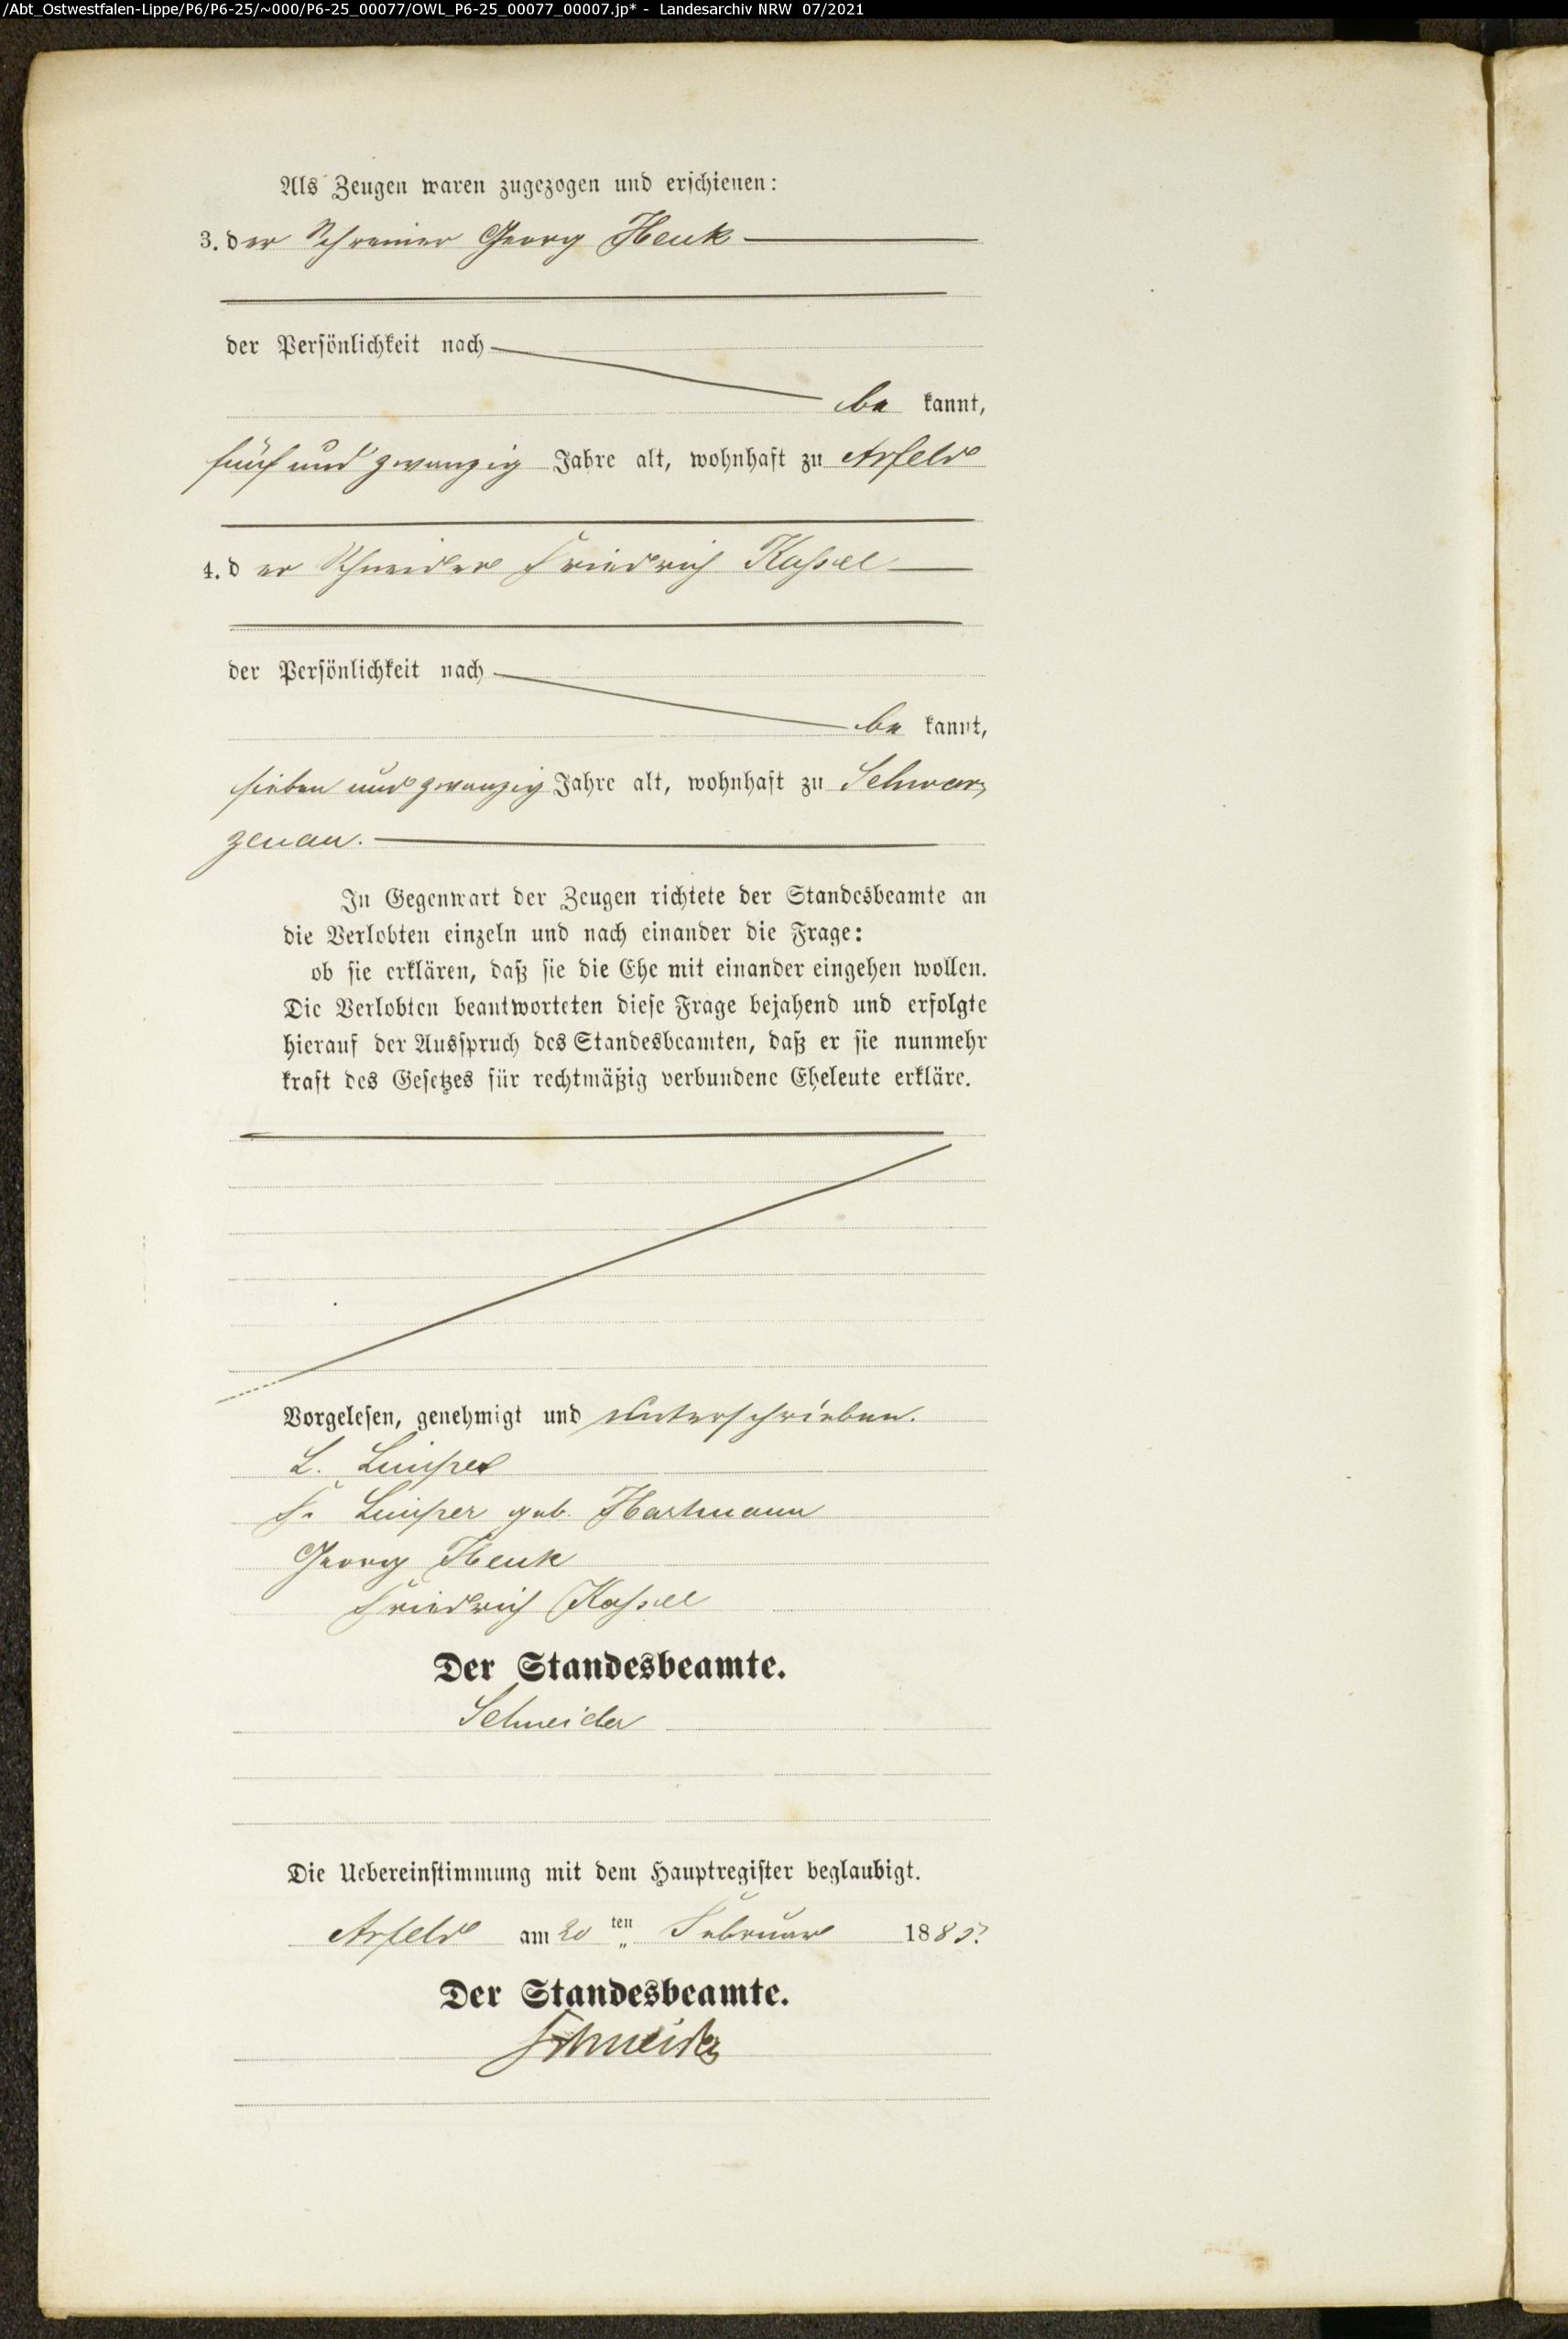 /Abt_Ostwestfalen-Lippe/P6/P6-25/~000/P6-25_00077/OWL_P6-25_00077_00007.jp* - Landesarchiv NRW 07/2021
Als Zeugen waren zugezogen und erschienen:
3. der Schreiner Georg Henk
der Persönlichkeit nach
be kannt,
fünf und zwanzig Jahre alt, wohnhaft zu Arfeld
4. d er Schneider Friedrich Kassel
der Persönlichkeit nach
be kannt,
sieben und zwanzig Jahre alt, wohnhaft zu Schwar,
zenau.
In Gegenwart der Zeugen richtete der Standesbeamte an
die Verlobten einzeln und nach einander die Frage:
ob sie erklären, daß sie die Ehe mit einander eingehen wollen.
Die Verlobten beantworteten diese Frage bejahend und erfolgte
hierauf der Ausspruch des Standesbeamten, daß er sie nunmehr
kraft des Gesetzes für rechtmäßig verbundene Eheleute erkläre.
Vorgelesen, genehmigt und unterschrieben.
L.
F. geb. Hartmann
Georg Henk
Friedrich Kassel
Der Standesbeamte.
Schneider
Die Uebereinstimmung mit dem Hauptregister beglaubigt.
Arfeld am 20 ten Februar 188
Der Standesbeamte.
Schneider